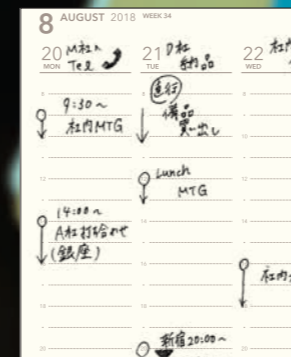 8 AUGUST 2018 WEEK 34
20 MON
M社へ
Tel
9:30〜
社内MTG
14:00〜
A社打ち合わせ
(銀座)
21 TUE
D社
納品
直行
備品
買い出し
Lunch
MTG
新宿20:00〜
22 WED
社内